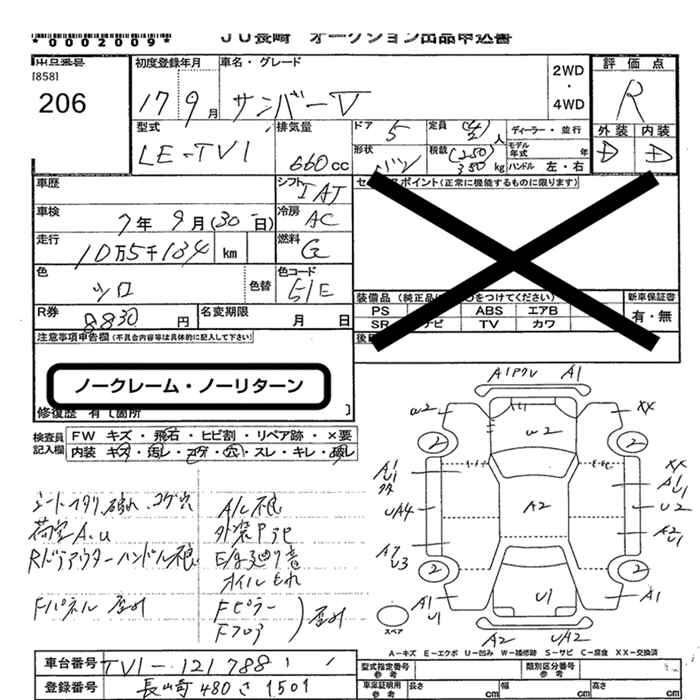 *0002009*
JU長崎 オークション出品申込書
出品番号
[858]
206
初度登録年月
17 9月
車名・グレード
サンバーV
2WD
・
4WD
評価点
R
外装 内装
D D
型式
LE-TV1
排気量
660cc
ドア
5
定員
人
ディーラー・並行
形状
バン
積載
(250)
350 kg
モデル年式 年
ハンドル 左・右
車歴
シフト
IAT
セールスポイント(正常に機能するものに限ります)
車検
7年 9月(30日)
冷房
AC
走行
10万5千134 km
燃料
G
色
シロ
色替
色コード
51E
装備品 (純正品に〇をつけてください)
新車保証書
PS ABS エアB
有・無
SR ナビ TV カワ
R券
8830 円
名変期限
月 日
注意事項申告欄(不具合内容等は具体的に記入して下さい)
ノークレーム・ノーリターン
修復歴 有〔箇所 〕
検査員記入欄
FW キズ・飛石・ヒビ割・リペア跡・×要
内装 キズ・汚レ・コゲ・穴・スレ・キレ・破レ
シートコスリ、破れ、コゲ穴
荷室A.U
Rドアアウターハンドル不良
Fパネル歪み
A/C不良
E/G廻り音
オイルもれ
Fピラー
Fフロア
歪み
A1 A1
W2 XX
2 2
W2
A1
U1
XX
A1
U1
UA4
A2
U2
A2
U1
A7
U3
2 2
U1
A1
U1
A1
スペア
A2 UA2
A-キズ E-エクボ U-凹み W-補修跡 S-サビ C-腐食 XX-交換済
車台番号
TV1-121788
型式指定番号
参考
類別区分番号
参考
登録番号
長崎480さ1501
車庫証明用
参考
長さ cm
幅 cm
高さ cm